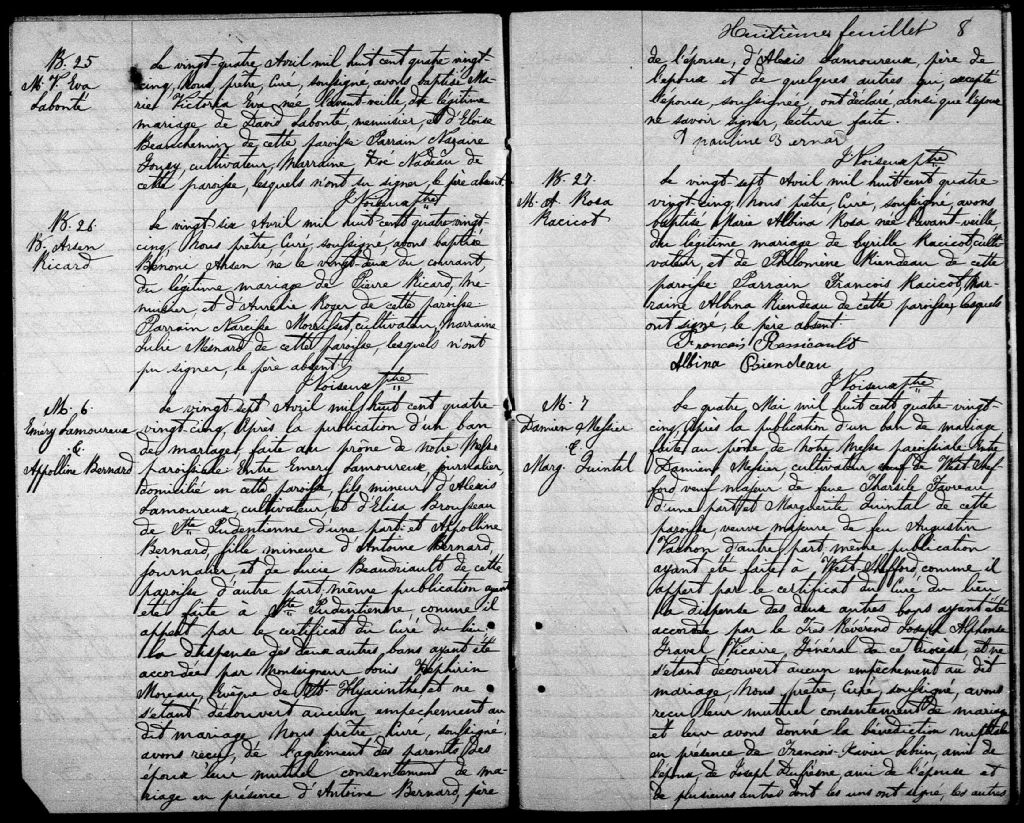 B. 25
M. V. Eva
Labonté
Le vingt-quatre Avril mil huit cent quatre vingt-
cinq, Nous, prêtre, Curé, soussigné avons baptisé Ma-
rie Victoria Eva née l'avant-veille, du légitime
mariage de David Labonté, menuisier, et d'Eloïse
Beauchemin de cette paroisse Parrain Nazaire
cultivateur, Marraine Zoé Nadeau de
cette paroisse, lesquels n'ont su signer, le père absent.
J Noiseux ptre
B. 26
B. Arsen
Ricard
Le vingt six Avril mil huit cent quatre vingt-
cinq, Nous prêtre Curé, soussigné, avons baptisé
Bénoni Arsen né le vingt-deux du courant,
du légitime mariage de Pierre Ricard, me-
nuisier, et d'Aurelie Roger de cette paroisse
Parrain Narcisse Morisset, cultivateur, Marraine
Julie Mesnard de cette paroisse, lesquels n'ont
pu signer, le père absent
J Noiseux ptre
M. 6.
Emery Lamoureux
&
Appolline Bernard
Le vingt-sept Avril mil huit cent quatre
vingt-cinq, Après la publication d'un ban
de mariage, faite au prône de notre Messe
paroissiale Entre Emery Lamoureux journalier,
domicilié en cette paroisse, fils mineur d'Alexis
Lamoureux, cultivateur et d'Elisa Brousseau
de Ste Pudentienne d'une part et Appolline
Bernard, fille mineure d'Antoine Bernard,
journalier et de Lucie Beaudriault de cette
paroisse d'autre part, même publication ayant
été faite à Ste Pudentienne, comme il
appert par le certificat du Curé du lieu
La dispense des deux autres bans ayant été
accordée par Monseigneur Louis Zéphirin
Moreau, Evêque de St. Hyacinthe, et ne
s'étant découvert aucun empechement au
dit mariage Nous prêtre, Curé, soussigné,
avons reçu, de l'agrément des parents des
époux leur mutuel consentement de ma-
riage en présence d'Antoine Bernard, père
Huitième feuillet 8
de l'épouse, d'Alexis Lamoureux, père de
l'époux et de quelques autres qui, excepté
l'épouse, soussignée, ont déclaré, ainsi que l'époux
ne savoir signer, lecture faite.
pauline Bernar
J Noiseux ptre
B. 27.
M. A. Rosa
Racicot
Le vingt-sept Avril mil huit cent quatre
vingt-cinq, Nous prêtre, Curé, soussigné, avons
baptisé Marie Albina Rosa née l'avant-veille
du légitime mariage de Cyrille Racicot, culti-
vateur, et de Philomène Riendeau de cette
paroisse Parrain François Racicot, Mar-
raine Albina Riendeau de cette paroisse, lesquels
ont signé, le père absent.
Francois Rassicault
Albina Briendeau
J Noiseux ptre
M. 7
Damien Messier
&
Marg. Quintal
Le quatre Mai mil huit cent quatre-vingt-
cinq, après la publication d'un ban de mariage
faite au prône de notre Messe paroissiale Entre
Damien Messier cultivateur de West Shef-
ford veuf majeur de feue Tharsile Favreau
d'une part, et Marguerite Quintal de cette
paroisse, veuve majeure de feu Augustin
Vachon d'autre part, même publication
ayant été faite à West Shefford, comme il
appert par le certificat du Curé du lieu
La dispense des deux autres bans ayant été
accordée par le Très Révérend Joseph Alphonse
Gravel Vicaire Général de ce diocèse, et ne
s'étant découvert aucun empechement au dit
mariage, Nous prêtre, Curé, soussigné, avons
reçu leur mutuel consentement de mariage
et leur avons donné la bénédiction nuptiale
en présence de François-Xavier Hébin, ami de
l'époux, de Joseph Dufresne ami de l'épouse et
de plusieurs autres dont les uns ont signé, les autres